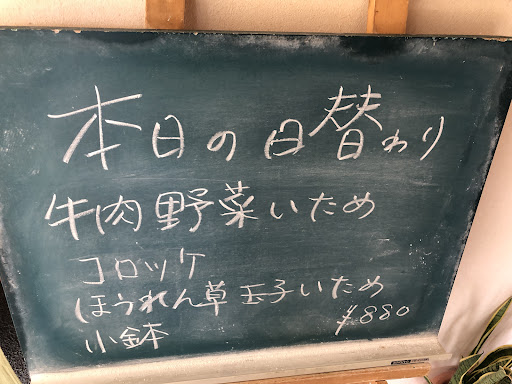 本日の日替わり
牛肉野菜いため
コロッケ
ほうれん草玉子いため
小鉢 ¥880